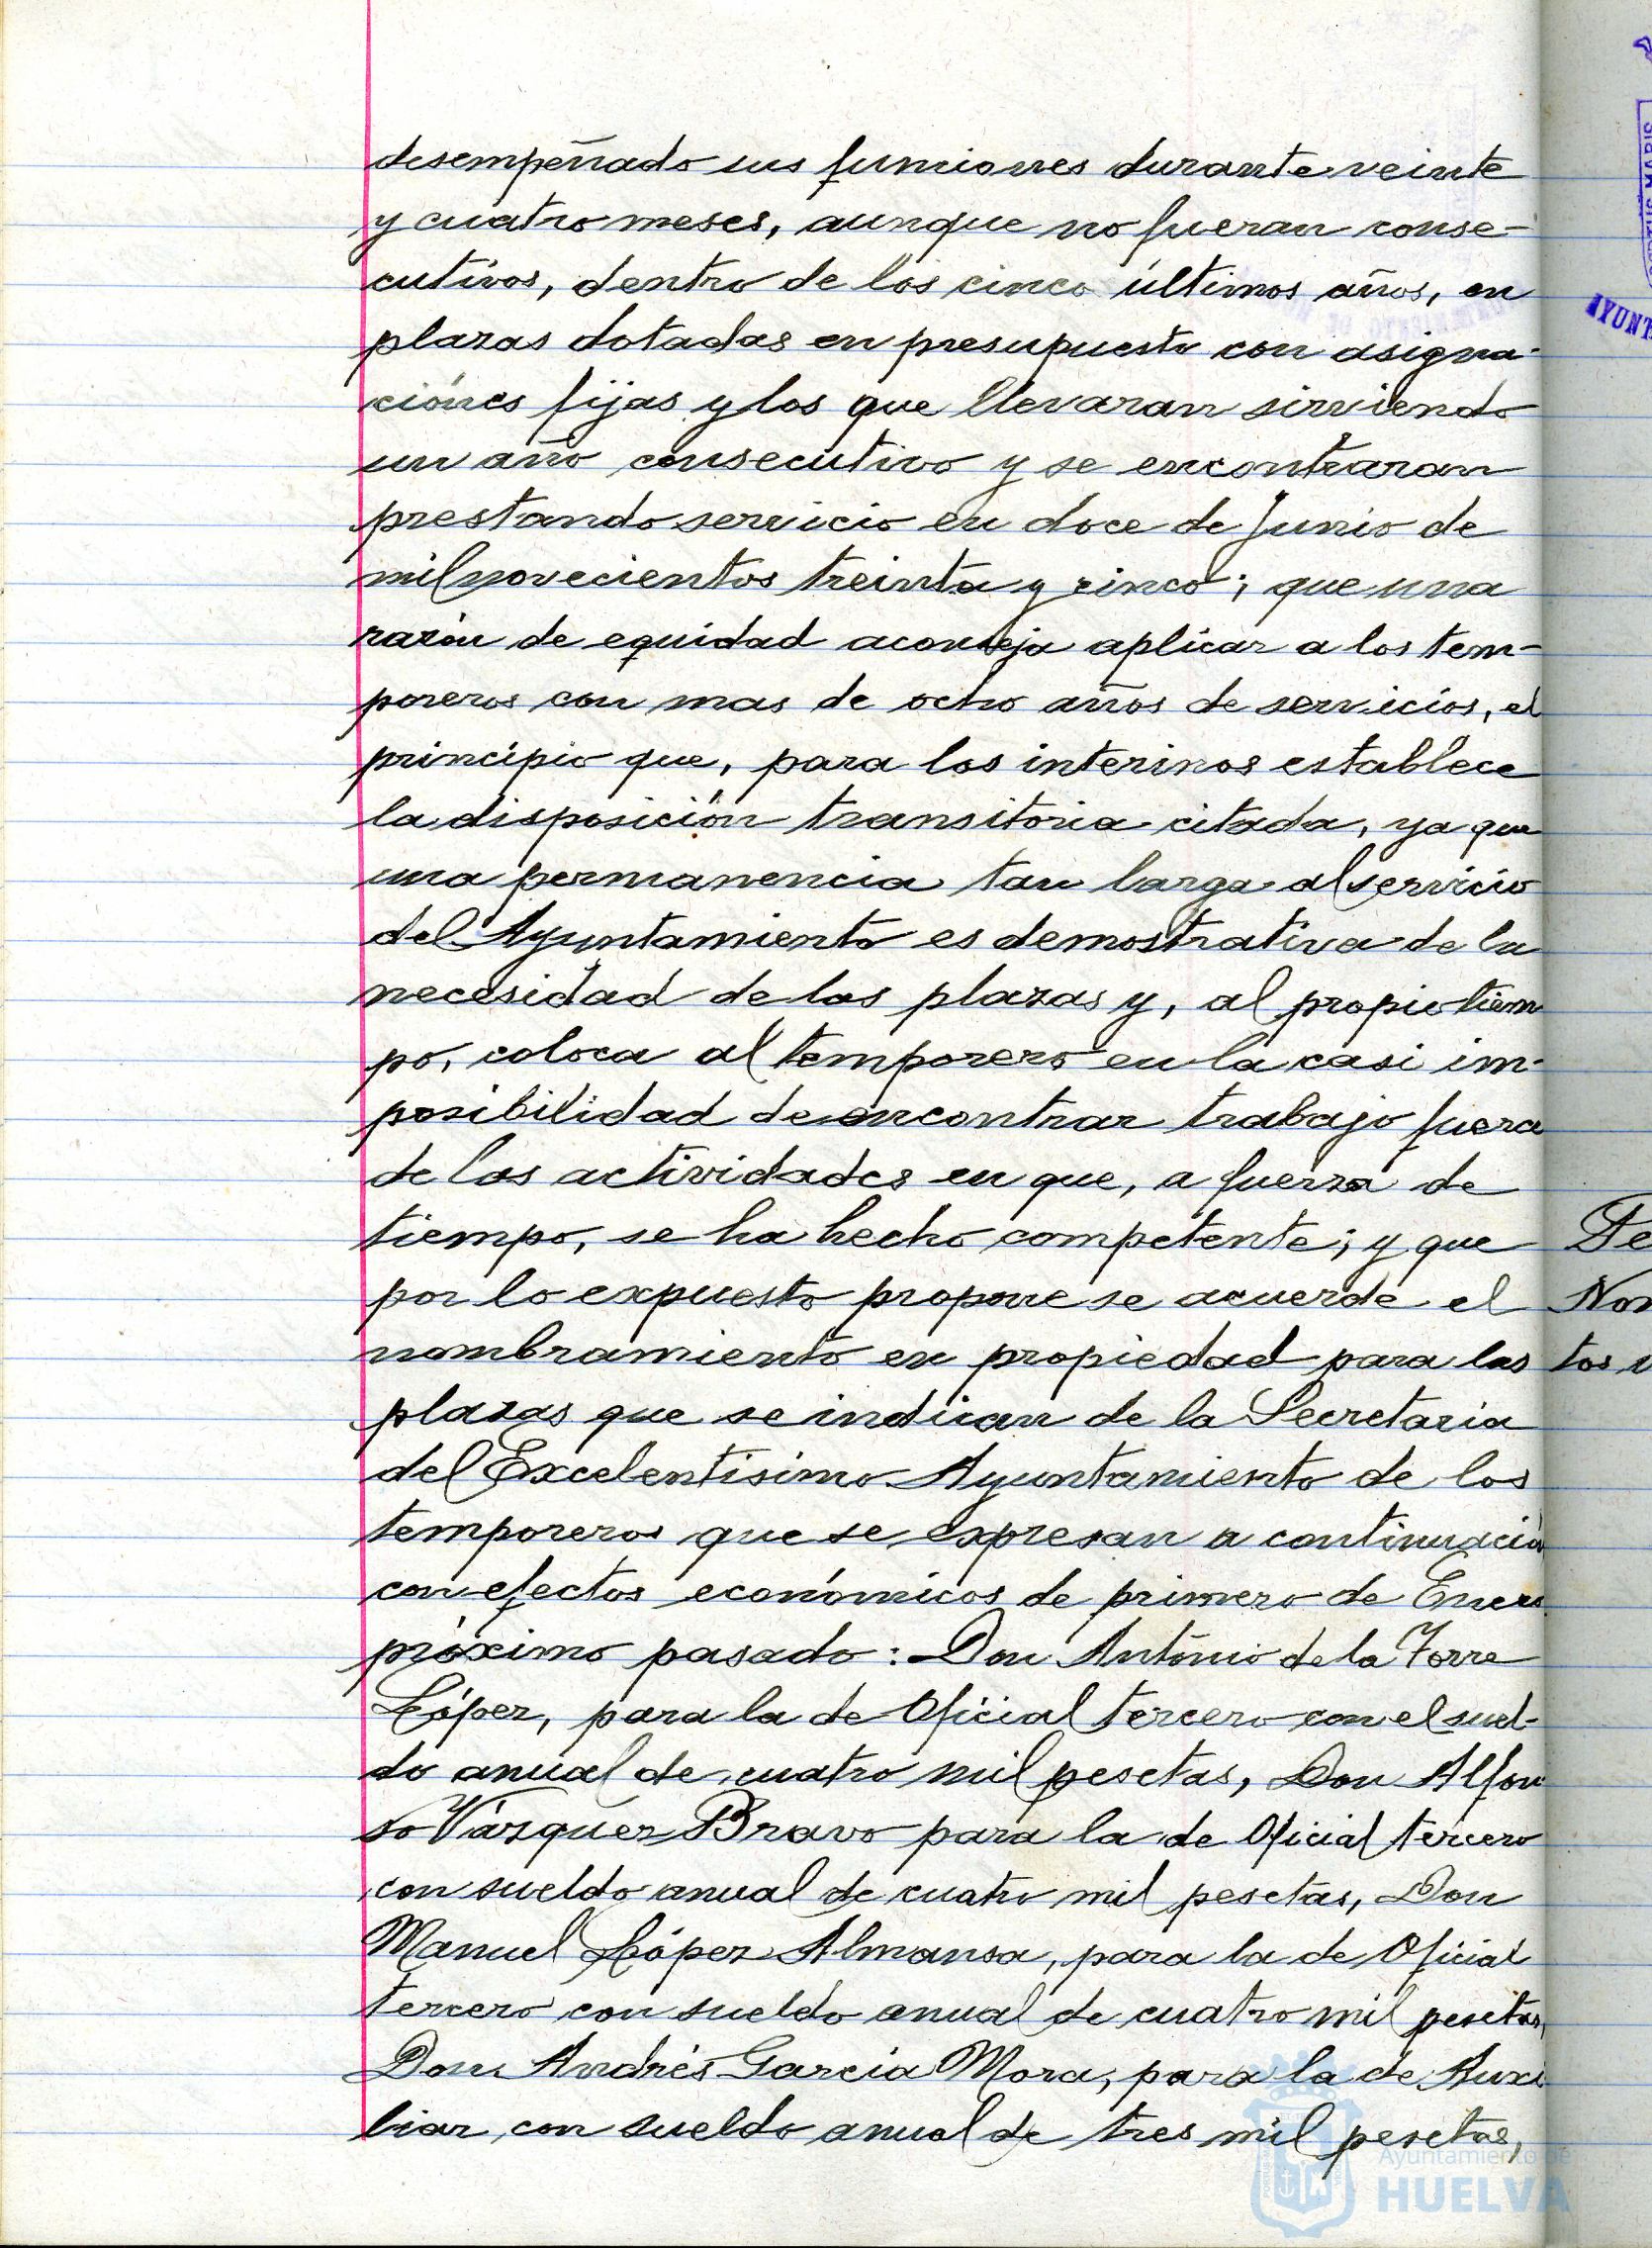 desempeñado sus funciones durante veinte
y cuatro meses, aunque no fueran conse-
cutivos, dentro de los cinco últimos años, en
plazas dotadas en presupuesto con asigna-
ciónes fijas y los que llevaran sirviendo
un año consecutivo y se encontraran
prestando servicio en doce de Junio de
mil novecientos treinta y cinco; que una
razón de equidad aconseja aplicar a los tem-
poreros con mas de ocho años de servicios, el
principio que, para los interinos establece
la disposición transitoria citada, ya que
una permanencia tan larga al servicio
del Ayuntamiento es demostrativa de la
necesidad de las plazas y, al propio tiem
po, coloca al temporero en la casi im-
posibilidad de encontrar trabajo fuera
de las actividades en que, a fuerza de
tiempo, se ha hecho competente; y que
por lo expuesto propone se acuerde el
nombramiento en propiedad para las
plazas que se indican de la Secretaria
del Excelentisimo Ayuntamiento de los
temporeros que se expresan a continuación
con efectos económicos de primero de Enero
próximo pasado: Don Antonio de la Torre
López, para la de Oficial tercero con el suel-
do anual de cuatro mil pesetas, Don Alfon
so Vázquez Bravo para la de Oficial tercero
con sueldo anual de cuatro mil pesetas, Don
Manuel López Almansa, para la de Oficial
tercero con sueldo anual de cuatro mil pesetas,
Don Andrés García Mora, para la de Auxi
liar, con sueldo anual de tres mil pesetas,
Ayuntamiento de
HUELVA
De
Nom
tos
AYUNT